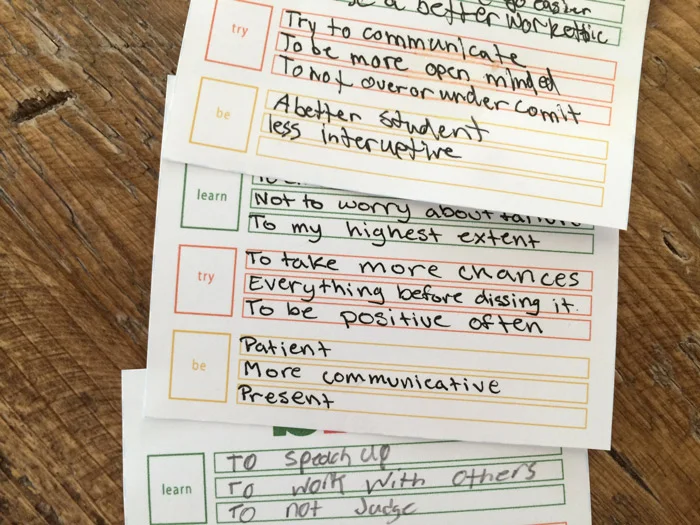 easier
a better workethic
try
Try to communicate
To be more open minded
To not over or under comit
be
A better student
less interuptive
learn
Not to worry about
To my highest extent
try
To take more chances
Everything before dissing it.
To be positive often
be
Patient
More communicative
Present
learn
To speach up
To work with others
To not Judge